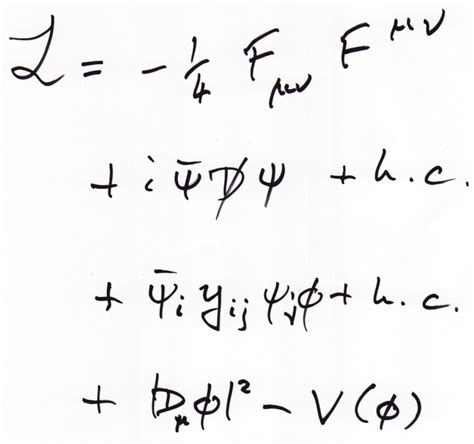 ℒ = -¼ F_μν F^μν
+ i ψ̄ D̸ ψ + h.c.
+ ψ̄_i y_ij ψ_j φ + h.c.
+ |D_μ φ|² - V(φ)